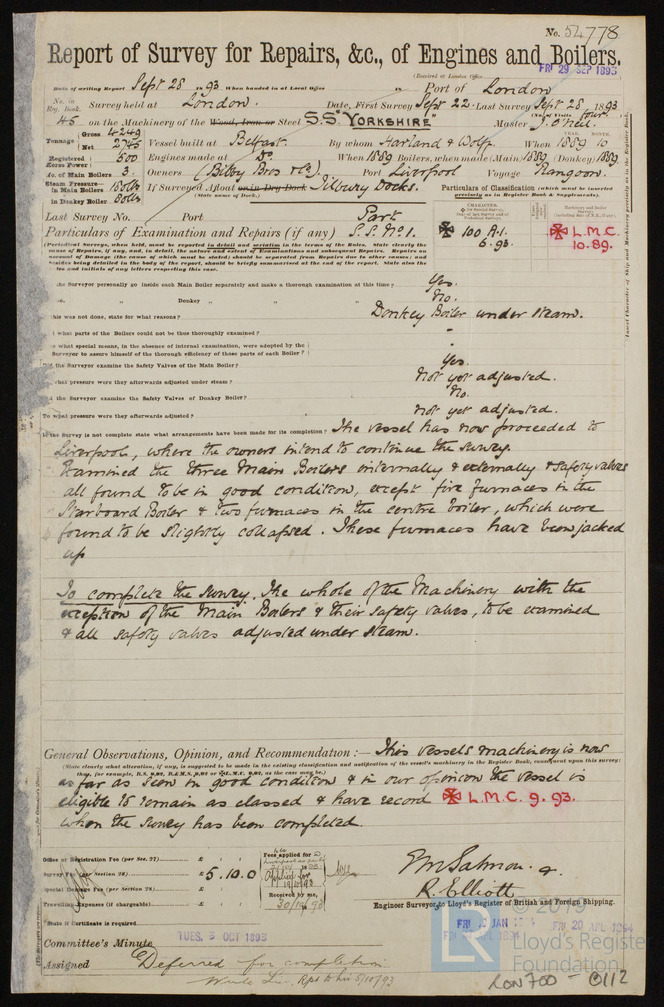 No. 54778
Report of Survey for Repairs, &c., of Engines and Boilers.
(Received at London Office
FRI 29 SEP 1893
Date of writing Report Sept 28 1893 When handed in at Local Office 18 Port of London
No. in Reg. Book. Survey held at London. Date, First Survey Sept 22 - Last Survey Sept 28, 1893
(No. of Visits four)
45 on the Machinery of the Wood, Iron or Steel S.S. "YORKSHIRE" Master J. O'Neil.
Tonnage Gross 4269
Net 2745
Vessel built at Belfast. By whom Harland & Wolff. When 1889 10
YEAR. MONTH.
Registered Horse Power 600 Engines made at Do. When 1889 Boilers, when made (Main) 1889 (Donkey) 1889
No. of Main Boilers 3. Owners (Bibby Bros & Co). Port Liverpool Voyage Rangoon.
Steam Pressure—
in Main Boilers 160 lbs
in Donkey Boiler 80 lbs
If Surveyed Afloat or in Dry Dock Tilbury Docks.
(State name of Dock.)
Particulars of Classification (which must be inserted precisely as in Register Book & Supplements).
Last Survey No. Port
Particulars of Examination and Repairs (if any) Part S.S. No. 1.
100 A.1. 6.93.
L.M.C. 10.89.
(Periodical Surveys, when held, must be reported in detail and seriatim in the terms of the Rules. State clearly the
cause of Repairs, if any, and, in detail, the nature and extent of Examinations and subsequent Repairs. Repairs on
account of Damage (the cause of which must be stated) should be separated from Repairs due to other causes; and
besides being detailed in the body of the report, should be briefly summarised at the end of the report. State also the
dates and initials of any letters respecting this case.
the Surveyor personally go inside each Main Boiler separately and make a thorough examination at this time? Yes.
do. " Donkey " " " No.
this was not done, state for what reasons? Donkey Boiler under steam.
what parts of the Boilers could not be thoroughly examined? "
what special means, in the absence of internal examination, were adopted by the
Surveyor to assure himself of the thorough efficiency of those parts of each Boiler? "
the Surveyor examine the Safety Valves of the Main Boiler? Yes.
what pressure were they afterwards adjusted under steam? Not yet adjusted.
the Surveyor examine the Safety Valves of Donkey Boiler? No.
To what pressure were they afterwards adjusted? not yet adjusted.
If the Survey is not complete state what arrangements have been made for its completion? The vessel has now proceeded to
Liverpool, where the owners intend to continue the survey.
Examined the three Main Boilers internally & externally & safety valves
all found to be in good condition, except five furnaces in the
Starboard Boiler & two furnaces in the centre boiler, which were
found to be slightly collapsed. These furnaces have been jacked
up
To complete the survey. The whole of the Machinery with the
exception of the Main Boilers & their safety valves, to be examined
& all safety valves adjusted under steam.
General Observations, Opinion, and Recommendation:— This vessels machinery is now
(State clearly what alteration, if any, is suggested to be made in the existing classification and notification of the vessel's machinery in the Register Book, consequent upon this survey;
as far as seen in good condition & in our opinion the vessel is
eligible to remain as classed & have record L.M.C. 9.93.
when the survey has been completed.
Office or Registration Fee (per Sec. 27) £
Survey Fee (per Section 28) £5.10.0
Special Damage Fee (per Section 28) £
Travelling Expenses (if chargeable) £
Fees applied for
Received by me,
30/10/93
E M Salmon &
R. Elliott
Engineer Surveyor to Lloyd's Register of British and Foreign Shipping.
State if Certificate is required
Committee's Minute TUES. 3 OCT 1893
FRI 20 APL 1894
Assigned Deferred for completion
5/10/93
LR
© 2019
Lloyd's Register
Foundation
LON700 - 0112